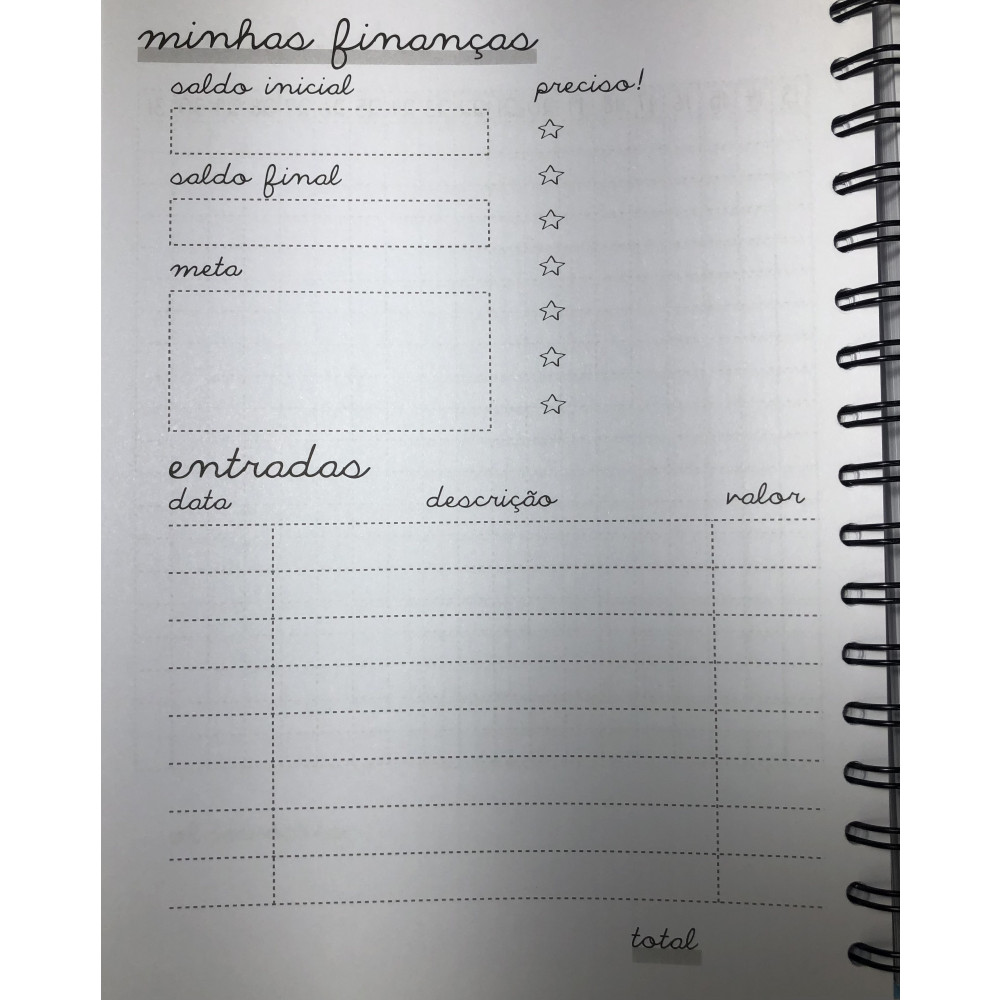 minhas finanças
saldo inicial
preciso!
saldo final
meta
entradas
data descrição valor
total